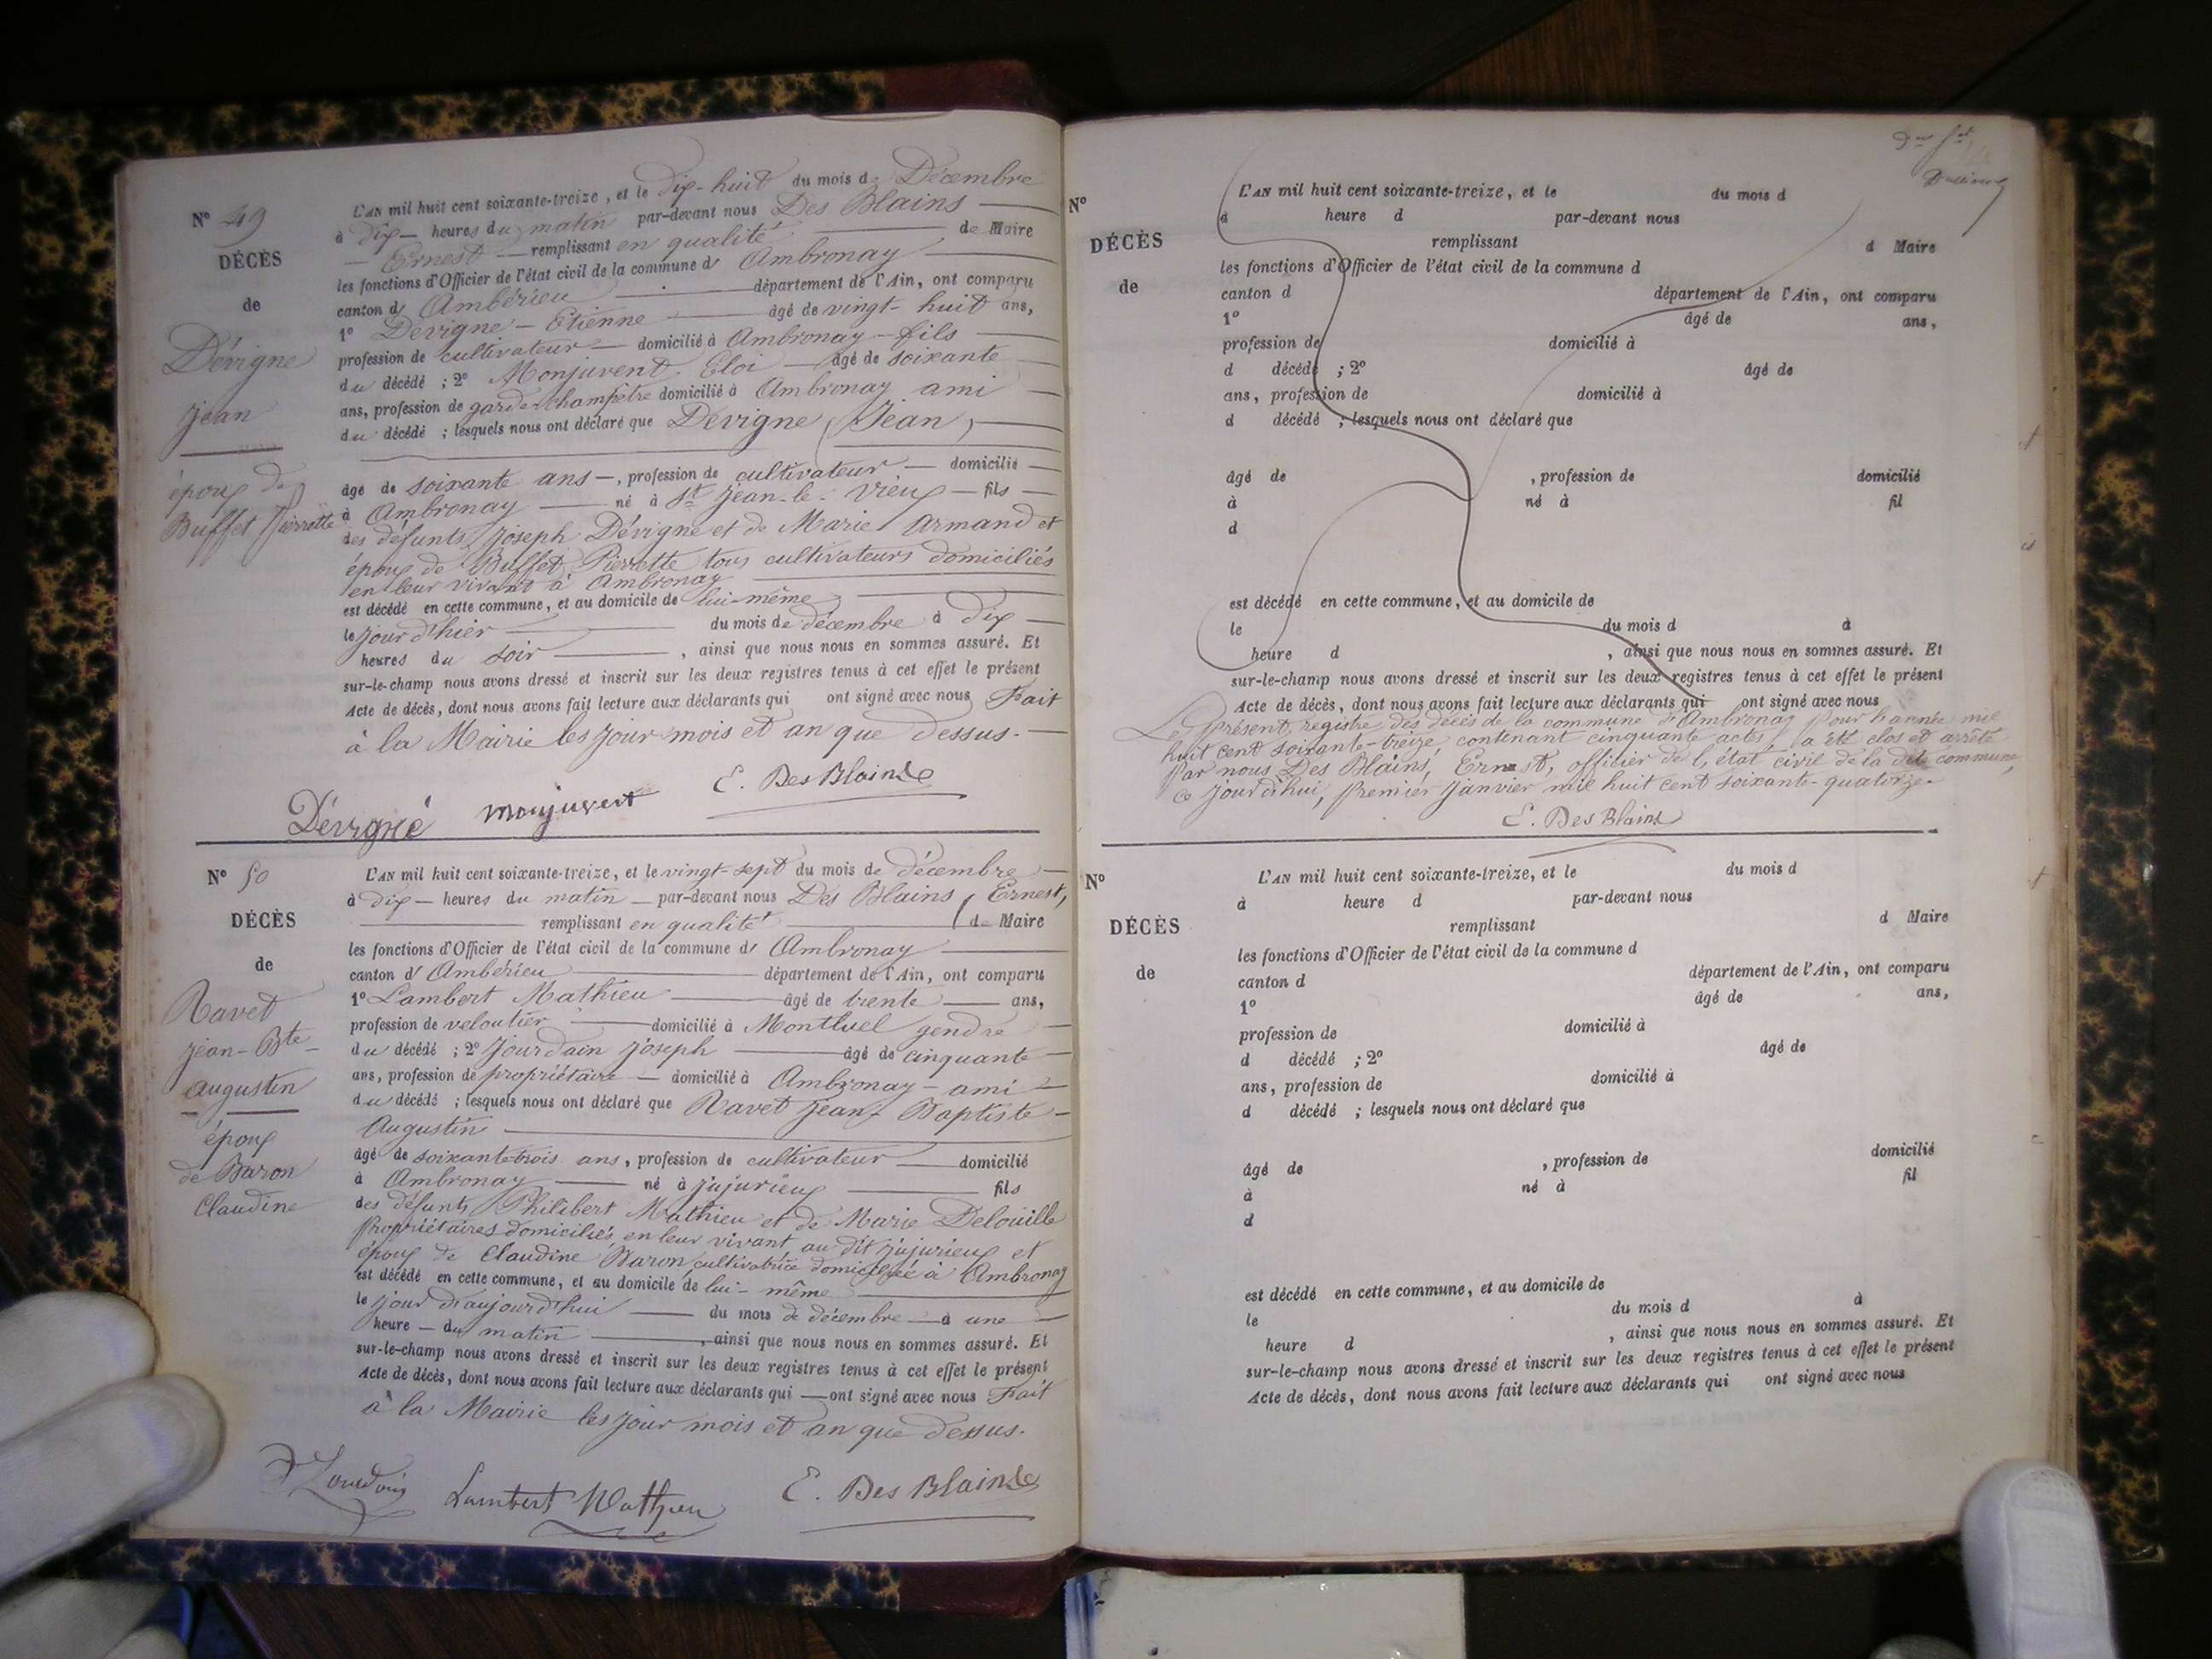 N° 49
DÉCÈS
de
Dévigne
Jean
époux de
Buffet Pierrette
L'AN mil huit cent soixante-treize, et le dix-huit du mois de Décembre
à dix heures du matin par-devant nous Des Blains
Ernest remplissant en qualité de Maire
les fonctions d'Officier de l'état civil de la commune d' Ambronay
canton d' Ambérieu département de l'Ain, ont comparu
1° Dévigne Etienne âgé de vingt-huit ans,
profession de cultivateur domicilié à Ambronay fils
du décédé ; 2° Monjuvent Eloi âgé de soixante
ans, profession de garde-champêtre domicilié à Ambronay ami
du décédé ; lesquels nous ont déclaré que Dévigne Jean,
âgé de soixante ans, profession de cultivateur domicilié
à Ambronay né à St Jean-le-Vieux fils
des défunts Joseph Dévigne et de Marie Armand et
époux de Buffet Pierrette tous cultivateurs domiciliés
en leur vivant à Ambronay
est décédé en cette commune, et au domicile de lui-même
le jour d'hier du mois de décembre à dix
heures du soir, ainsi que nous nous en sommes assuré. Et
sur-le-champ nous avons dressé et inscrit sur les deux registres tenus à cet effet le présent
Acte de décès, dont nous avons fait lecture aux déclarants qui ont signé avec nous Fait
à la Mairie les jour mois et an que dessus.
Dévigne Monjuvent E. Des Blains
N° 50
DÉCÈS
de
Ravet
Jean-Bte
Augustin
époux
de Baron
Claudine
L'AN mil huit cent soixante-treize, et le vingt-sept du mois de décembre
à dix heures du matin par-devant nous Des Blains, Ernest,
remplissant en qualité de Maire
les fonctions d'Officier de l'état civil de la commune d' Ambronay
canton d' Ambérieu département de l'Ain, ont comparu
1° Lambert Mathieu âgé de trente ans,
profession de veloutier domicilié à Montluel gendre
du décédé ; 2° Jourdain Joseph âgé de cinquante
ans, profession de propriétaire domicilié à Ambronay ami
du décédé ; lesquels nous ont déclaré que Ravet Jean-Baptiste
Augustin
âgé de soixante-trois ans, profession de cultivateur domicilié
à Ambronay né à Jujurieux fils
des défunts Philibert Mathieu et de Marie Delouille
propriétaires domiciliés en leur vivant au dit Jujurieux et
époux de Claudine Baron cultivatrice domiciliée à Ambronay
est décédé en cette commune, et au domicile de lui-même
le jour d'aujourd'hui du mois de décembre à une
heure du matin, ainsi que nous nous en sommes assuré. Et
sur-le-champ nous avons dressé et inscrit sur les deux registres tenus à cet effet le présent
Acte de décès, dont nous avons fait lecture aux déclarants qui ont signé avec nous Fait
à la Mairie les jour mois et an que dessus.
Lambert Mathieu E. Des Blains
N°
DÉCÈS
de
L'AN mil huit cent soixante-treize, et le du mois d
à heure d par-devant nous
remplissant d Maire
les fonctions d'Officier de l'état civil de la commune d
canton d département de l'Ain, ont comparu
1° âgé de ans,
profession de domicilié à
d décédé ; 2° âgé de
ans, profession de domicilié à
d décédé ; lesquels nous ont déclaré que
âgé de , profession de domicilié
à né à fil
d
est décédé en cette commune, et au domicile de
le du mois d à
heure d , ainsi que nous nous en sommes assuré. Et
sur-le-champ nous avons dressé et inscrit sur les deux registres tenus à cet effet le présent
Acte de décès, dont nous avons fait lecture aux déclarants qui ont signé avec nous
Le présent registre des décès de la commune d'Ambronay pour l'année mil
huit cent soixante-treize, contenant cinquante actes, a été clos et arrêté
par nous Des Blains, Ernest, officier de l'état civil de la dite commune,
ce jourd'hui, premier Janvier mil huit cent soixante-quatorze.
E. Des Blains
N°
DÉCÈS
de
L'AN mil huit cent soixante-treize, et le du mois d
à heure d par-devant nous
remplissant d Maire
les fonctions d'Officier de l'état civil de la commune d
canton d département de l'Ain, ont comparu
1° âgé de ans,
profession de domicilié à
d décédé ; 2° âgé de
ans, profession de domicilié à
d décédé ; lesquels nous ont déclaré que
âgé de , profession de domicilié
à né à fil
d
est décédé en cette commune, et au domicile de
le du mois d à
heure d , ainsi que nous nous en sommes assuré. Et
sur-le-champ nous avons dressé et inscrit sur les deux registres tenus à cet effet le présent
Acte de décès, dont nous avons fait lecture aux déclarants qui ont signé avec nous